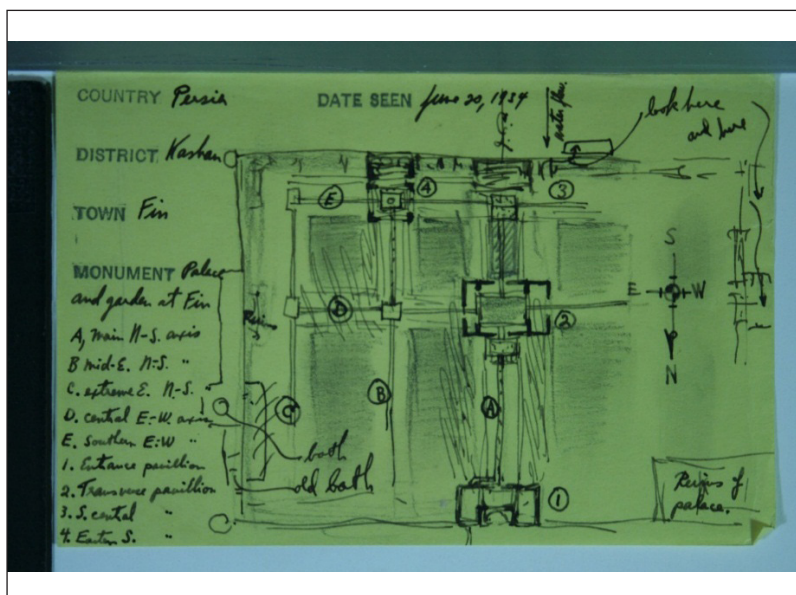 COUNTRY Persia
DATE SEEN June 20, 1934
DISTRICT Kashan
TOWN Fin
MONUMENT Palace
and garden at Fin
A, main N-S. axis
B mid-E. N-S. "
C. extreme E. N-S. "
D. central E-W. axis
E. Southern E-W "
1. Entrance pavillion
2. Transverse pavillion
3. S. central "
4. Eastern S. "
look here
and here
E
4
3
S
E W
N
D
2
C
B
A
bath
old bath
1
Ruins of
palace.